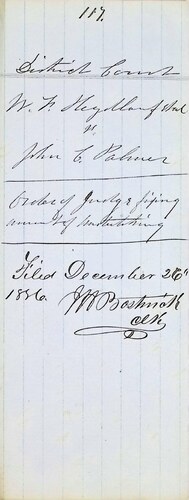 117.
District Court
W. F. Heydlauf et al
vs
John C. Palmer
Order of Judge fixing
amount of undertaking
Filed December 26"
1856.
J W Bostwick
clk